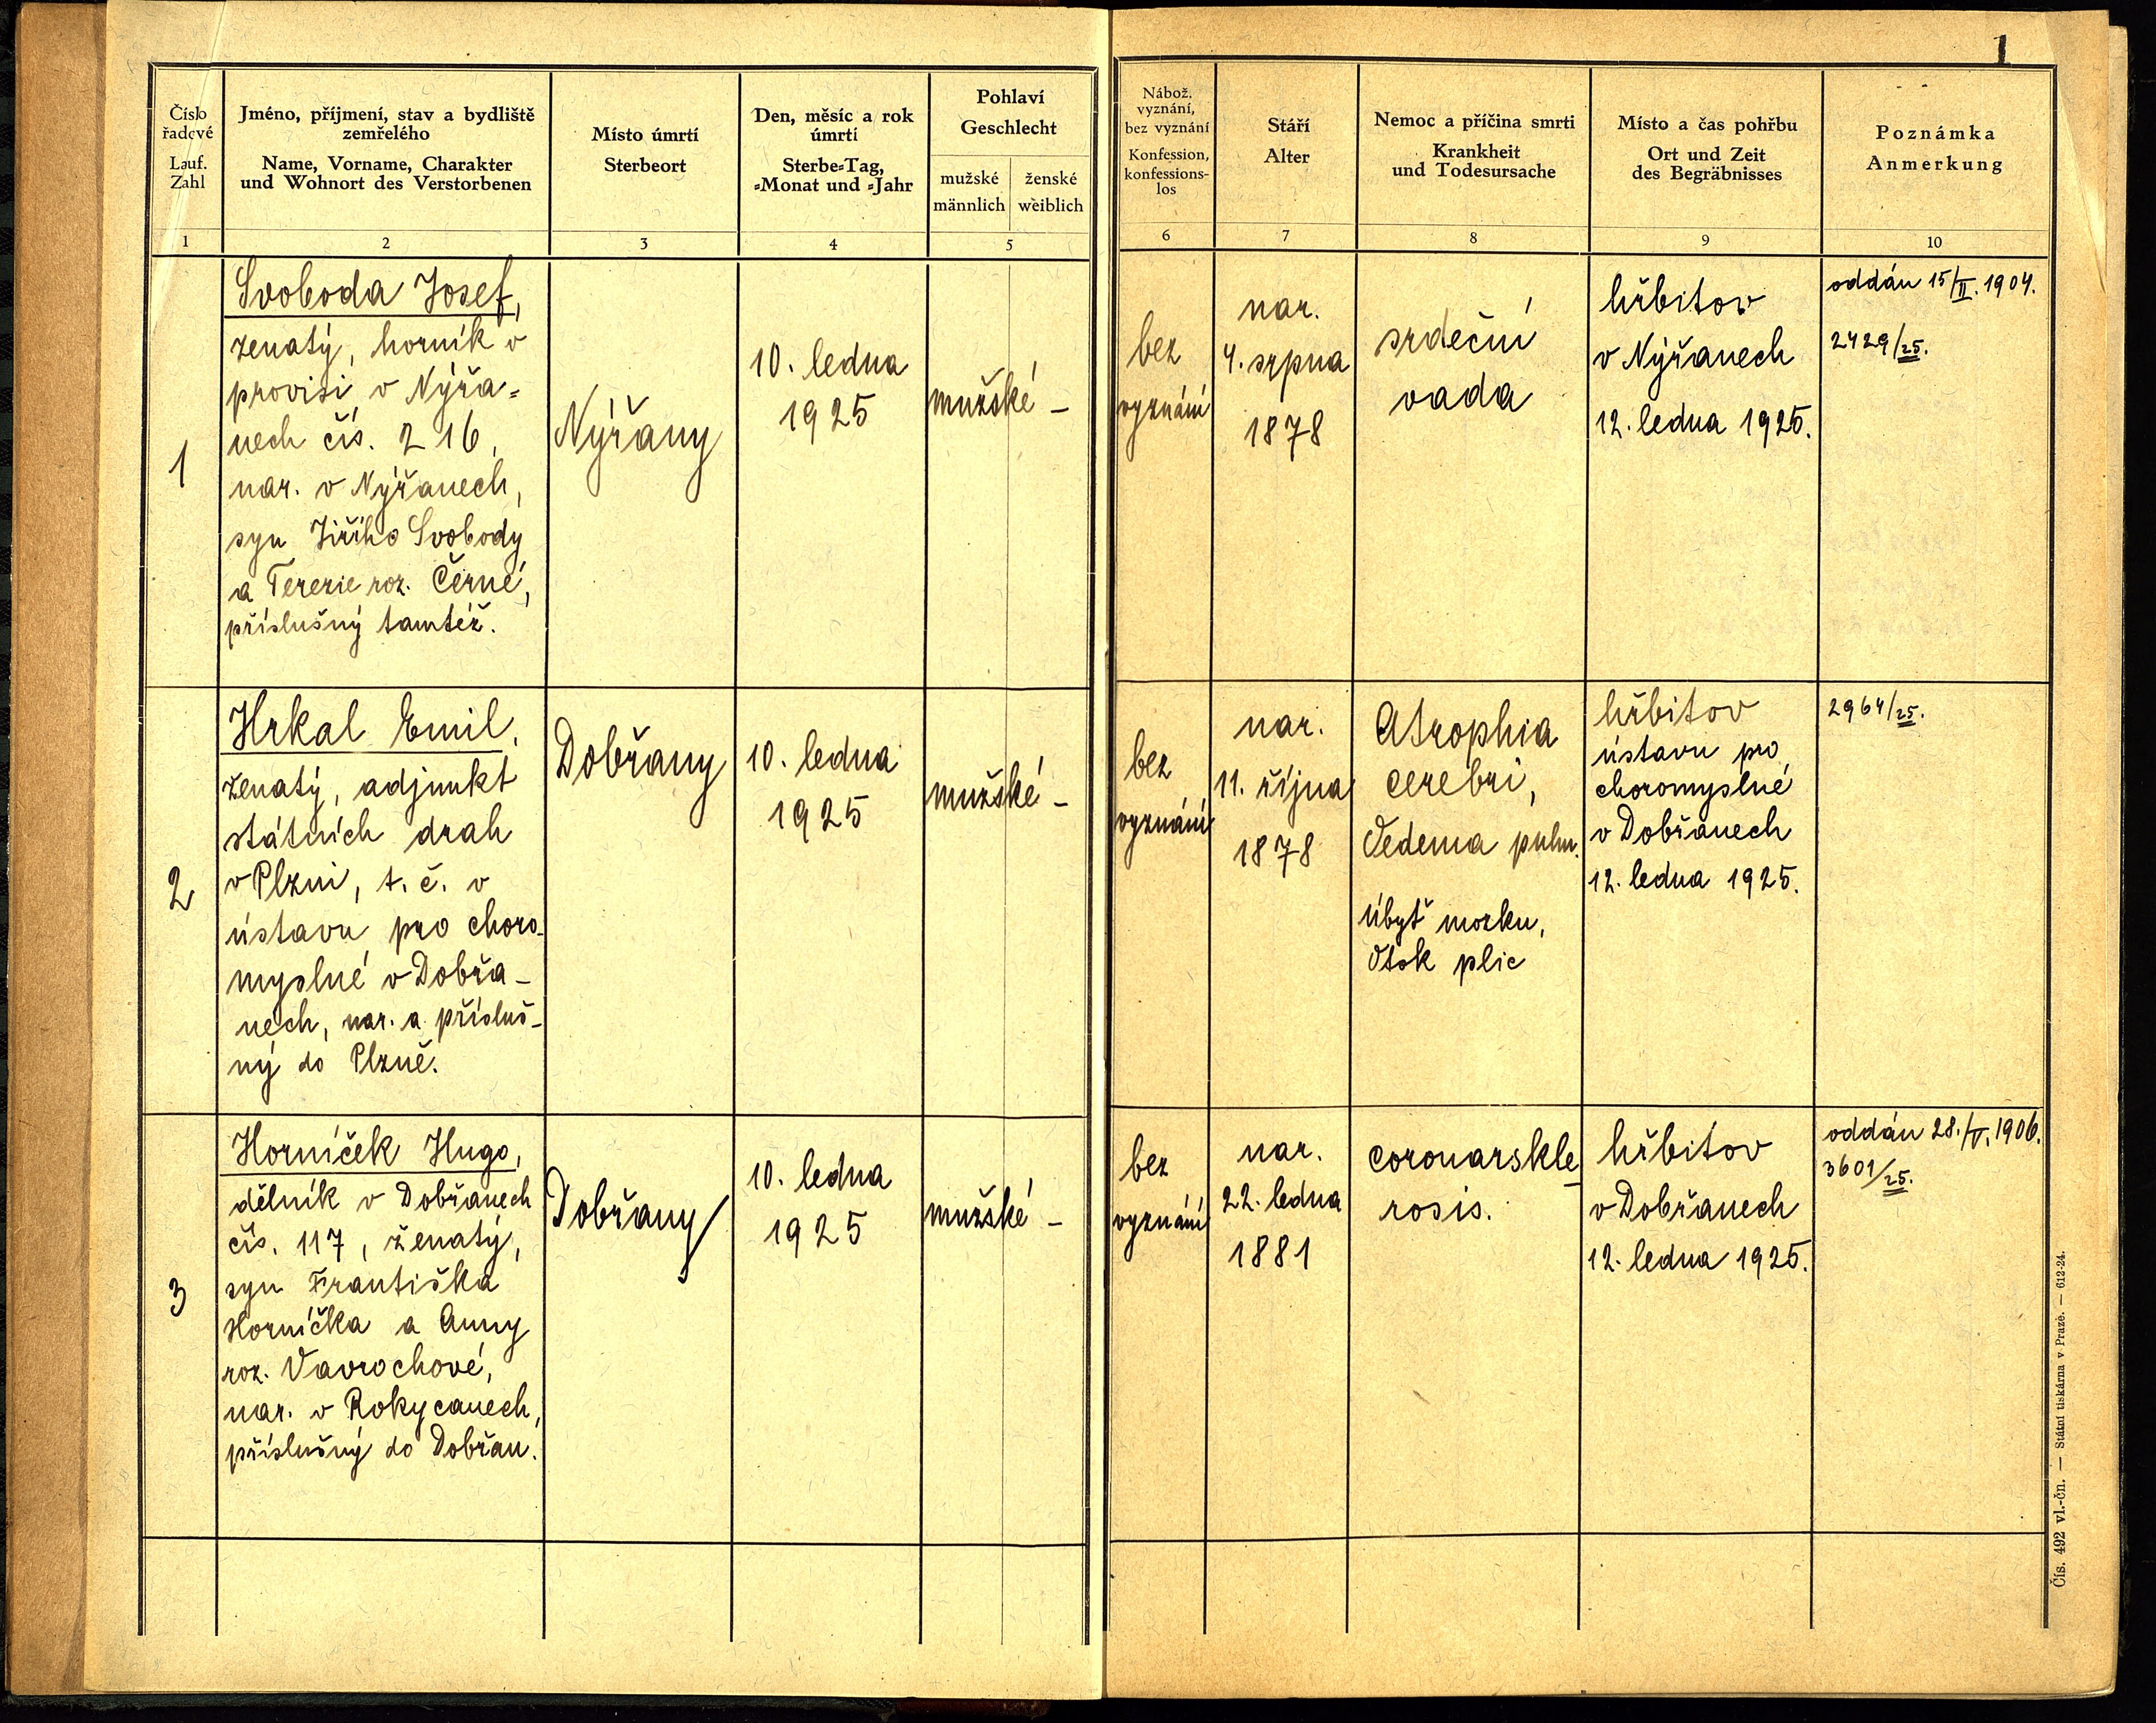 1
Číslo řadové
Lauf. Zahl
Jméno, příjmení, stav a bydliště
zemřelého
Name, Vorname, Charakter
und Wohnort des Verstorbenen
Místo úmrtí
Sterbeort
Den, měsíc a rok
úmrtí
Sterbe=Tag,
=Monat und =Jahr
Pohlaví
Geschlecht
mužské
männlich
ženské
weiblich
Nábož.
vyznání,
bez vyznání
Konfession,
konfessions-
los
Stáří
Alter
Nemoc a příčina smrti
Krankheit
und Todesursache
Místo a čas pohřbu
Ort und Zeit
des Begräbnisses
Poznámka
Anmerkung
1 2 3 4 5 6 7 8 9 10
1
Svoboda Josef,
ženatý, horník v
provisi v Nýřa=
nech čís. 216,
nar. v Nýřanech,
syn Jiřího Svobody
a Terezie roz. Černé,
příslušný tamtéž.
Nýřany
10. ledna
1925
mužské –
bez
vyznání
nar.
4. srpna
1878
srdeční
vada
hřbitov
v Nýřanech
12. ledna 1925.
oddán 15/II. 1904.
2429/25.
2
Hrkal Emil,
ženatý, adjunkt
státních drah
v Plzni, t. č. v
ústavu pro choro-
myslné v Dobřa-
nech, nar. a přísluš-
ný do Plzně.
Dobřany
10. ledna
1925
mužské –
bez
vyznání
nar.
11. října
1878
Atrophia
cerebri,
Oedema pulm.
Úbyť mozku,
Otok plic
hřbitov
ústavu pro
choromyslné
v Dobřanech
12. ledna 1925.
2964/25.
3
Horníček Hugo,
dělník v Dobřanech
čís. 117, ženatý,
syn Františka
Horníčka a Anny
roz. Vavrochové,
nar. v Rokycanech,
příslušný do Dobřan.
Dobřany
10. ledna
1925
mužské –
bez
vyznání
nar.
22. ledna
1881
coronarskle
rosis.
hřbitov
v Dobřanech
12. ledna 1925.
oddán 28./V. 1906.
3601/25.
Čís. 492 vl.-čn. — Státní tiskárna v Praze. — 612-24.